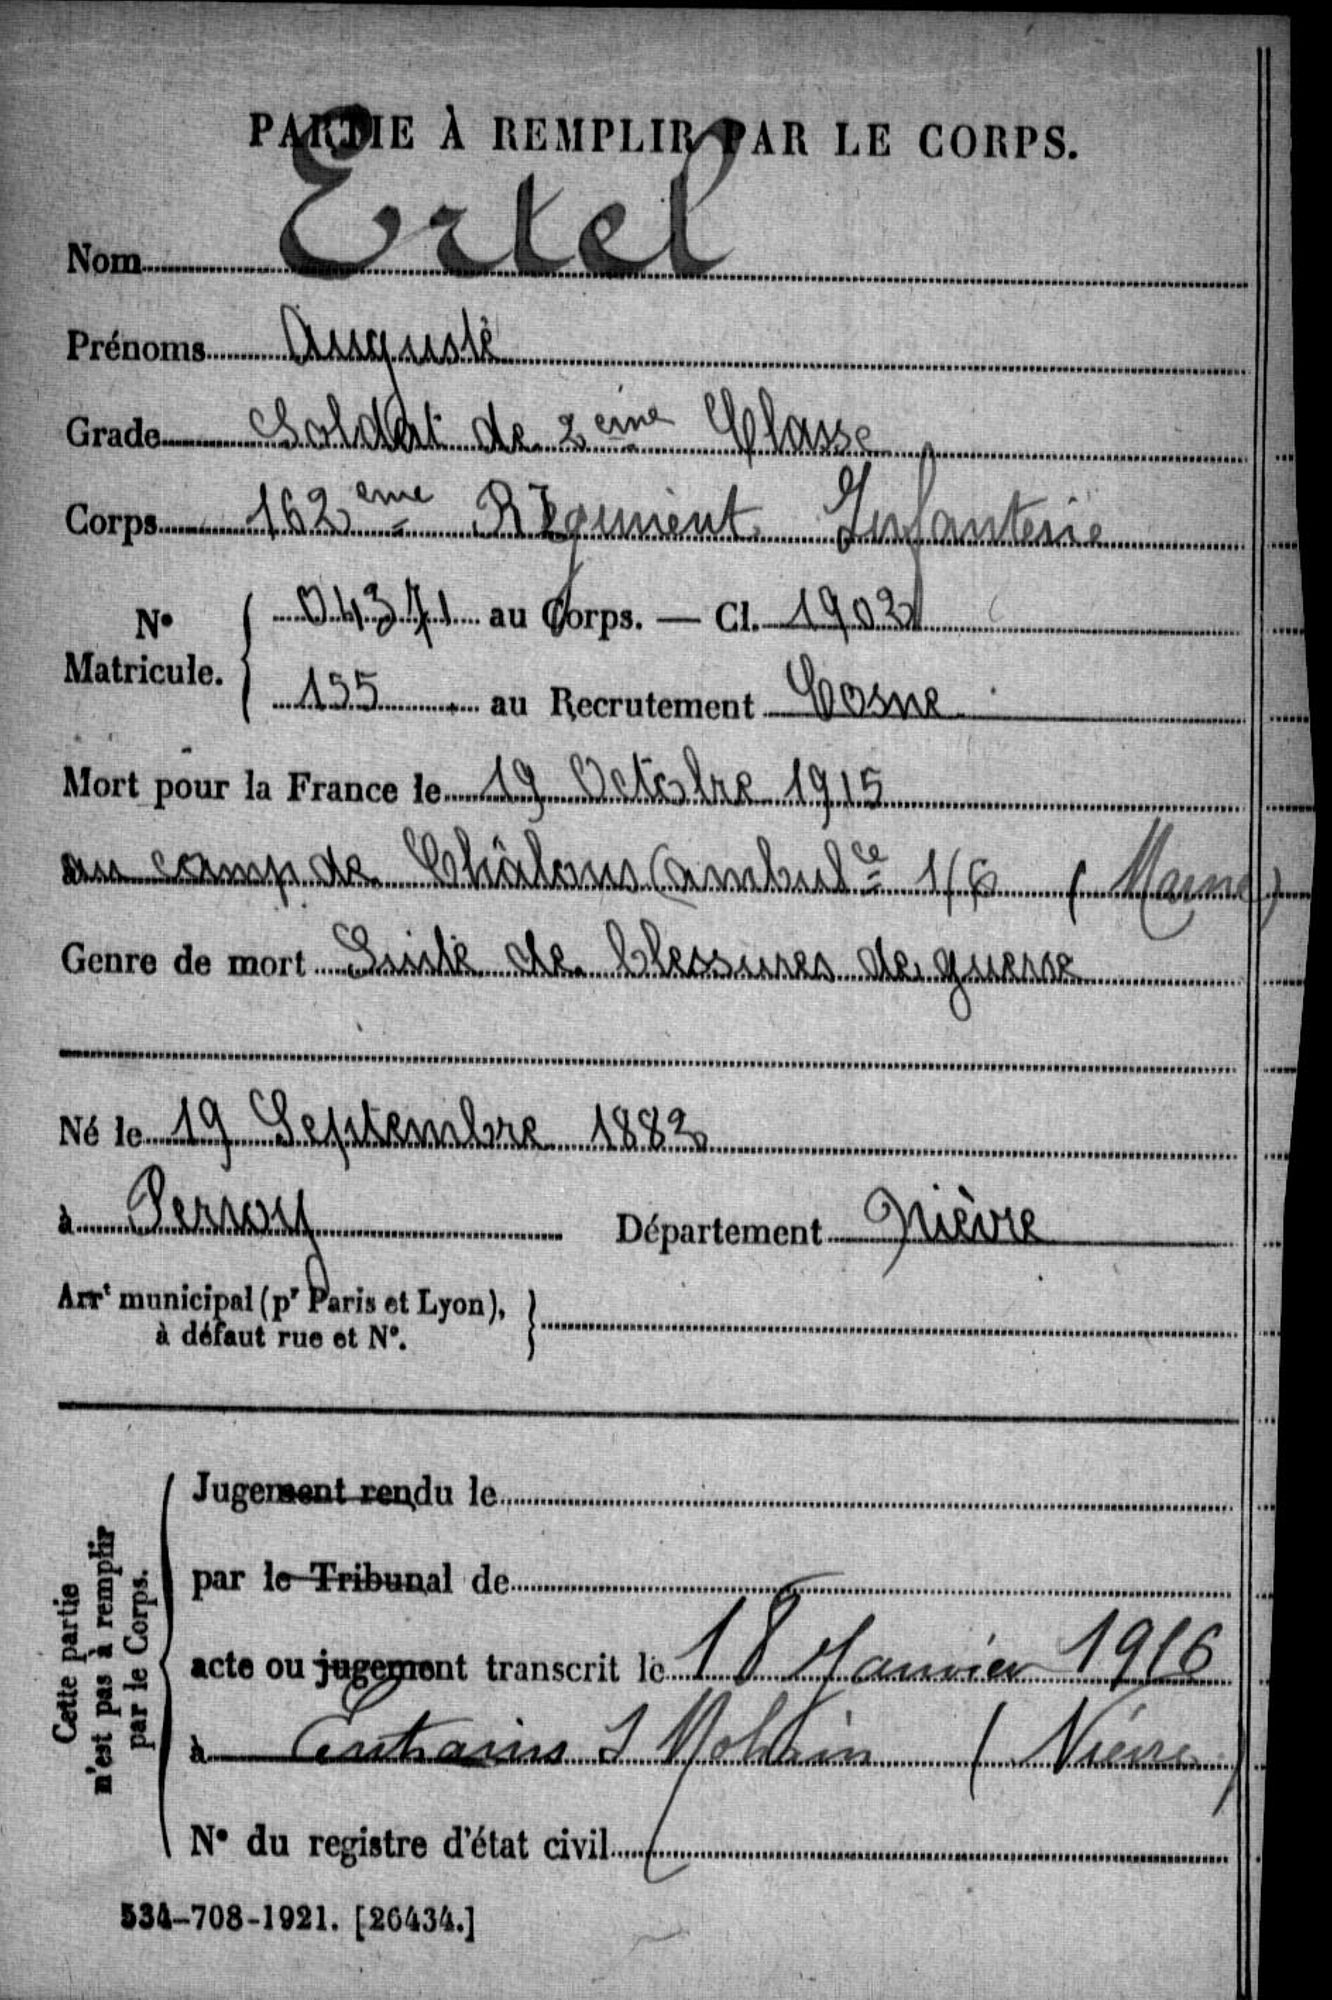 PARTIE À REMPLIR PAR LE CORPS.
Nom Ertel
Prénoms Auguste
Grade Soldat de 2ème Classe
Corps 162ème Régiment Infanterie
N° Matricule. { 04371 au Corps. — Cl. 1902
155 au Recrutement Cosne
Mort pour la France le 19 Octobre 1915
au camp de Châlons (ambulce 1/6 (Marne)
Genre de mort Suite de blessures de guerre
Né le 19 Septembre 1882
à Perroy Département Nièvre
Arrt municipal (pr Paris et Lyon), à défaut rue et N°. }
Cette partie n'est pas à remplir par le Corps. {
Jugement rendu le
par le Tribunal de
acte ou jugement transcrit le 18 Janvier 1916
à Entrains s/ Nohain (Nièvre)
N° du registre d'état civil
534-708-1921. [26434.]